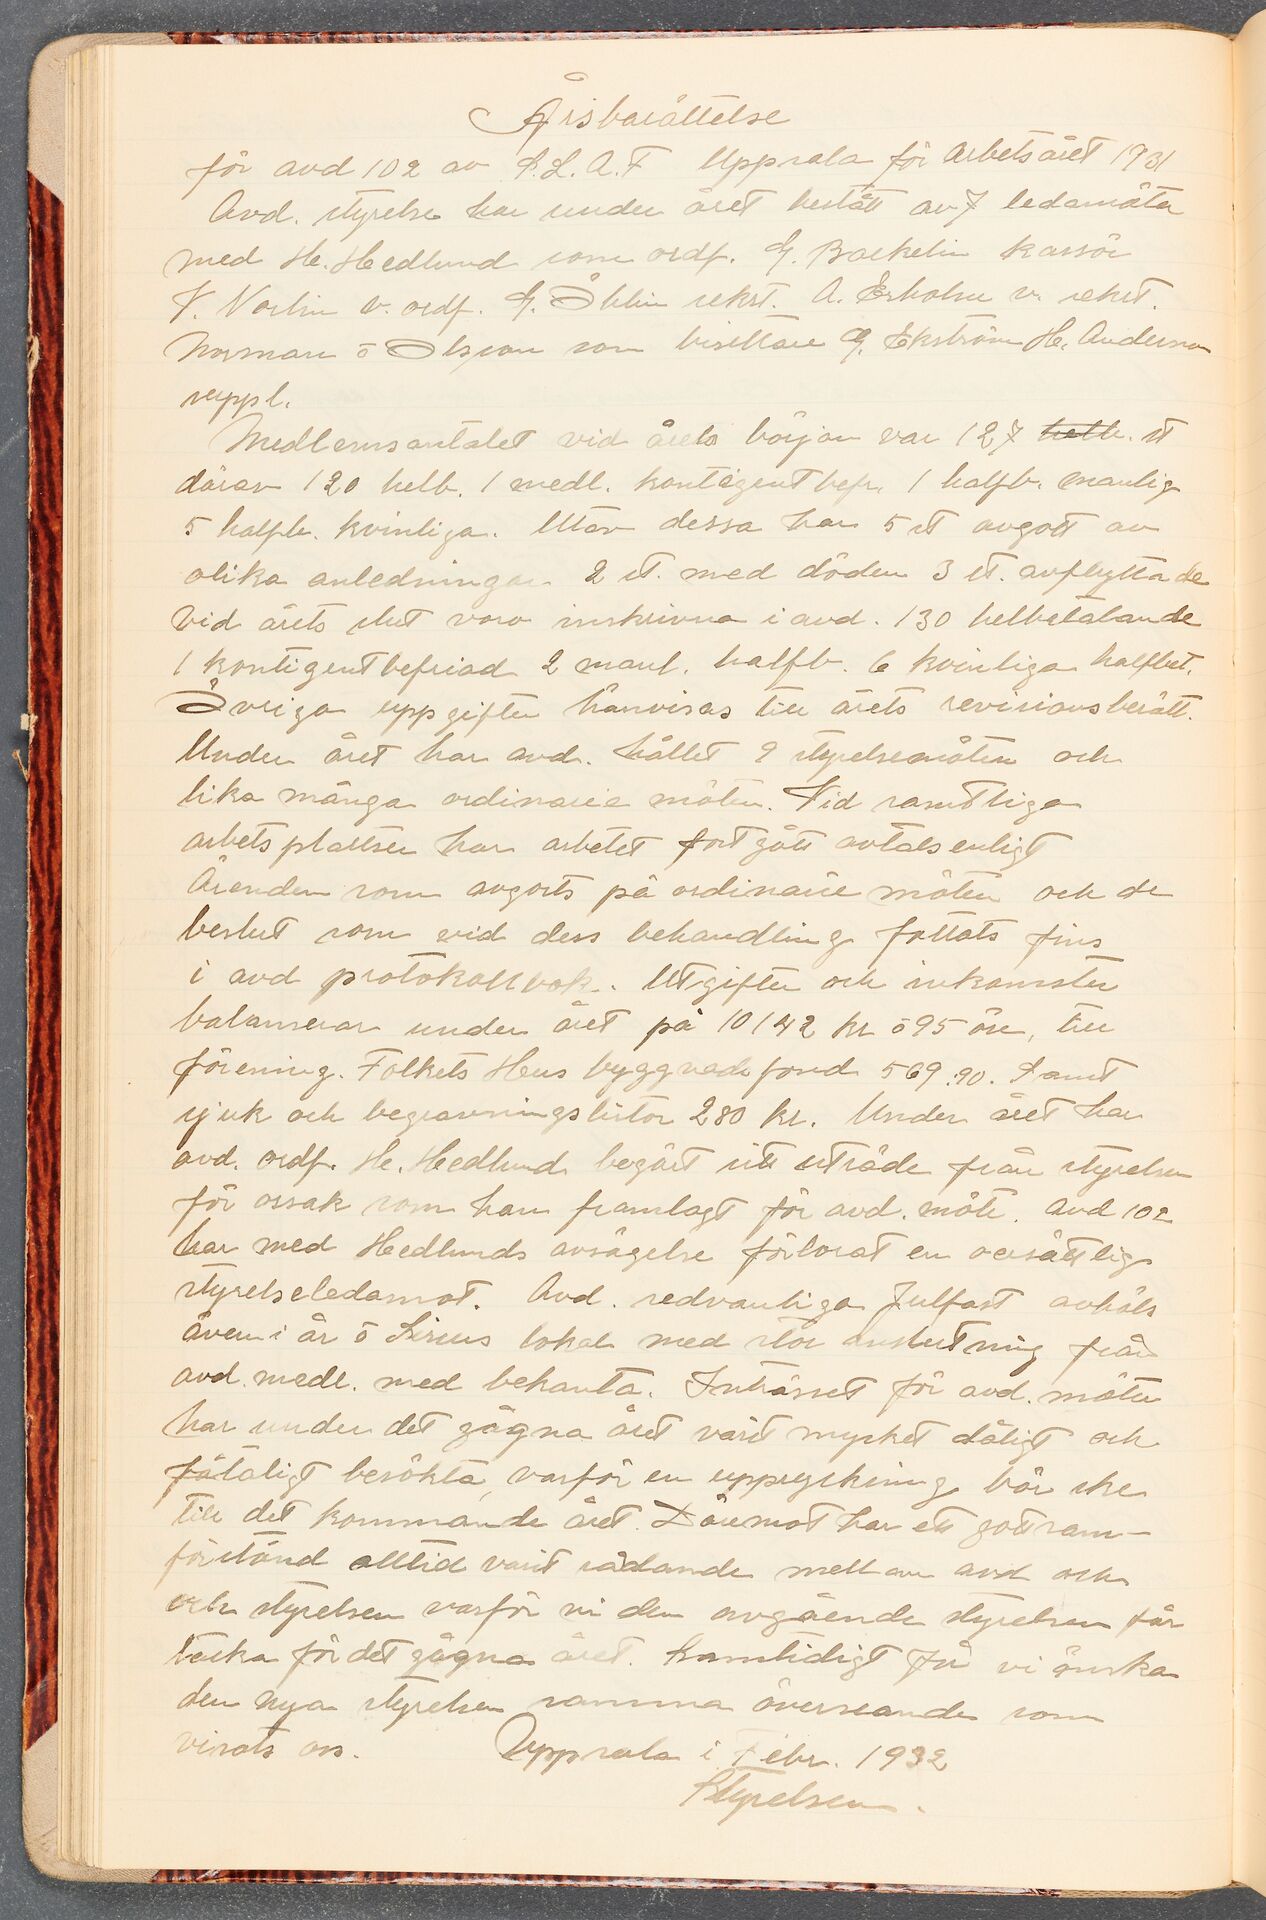 Årsberättelse
för avd 102 av S.L.A.F Uppsala för Arbetsåret 1931
Avd. styrelse har under året bestått av 7 ledamöter
med He. Hedlund som ordf. G. Backelin kassör
V. Norlin v. ordf. G. Öhlin sekrt. A. Erholm v. sekrt.
Norman o Olsson som bisittare G. Ekström He. Anderson
suppl.
Medlemsantalet vid årets början var 127 helb. st
därav 120 helb. 1 medl. kontigentbefr. 1 halfb. manlig
5 halfb. kvinliga. Utav dessa har 5 st avgått av
olika anledningar 2 st. med döden 3 st. avflyttade
Vid årets slut voro inskrivna i avd. 130 helbetalande
1 kontigentbefriad 2 manl. halfb. 6 kvinliga halfbet.
Övriga uppgifter hänvisas till årets revisionsberätt.
Under året har avd. hållet 9 styrelsemöten och
lika många ordinarie möten. Vid samtliga
arbetsplattser har arbetet fortgått avtalsenligt
Ärenden som avgorts på ordinarie möten och de
beslut som vid dess behandling fattats fins
i avd protokollbok. Utgifter och inkomster
balanserar under året på 10142 kr o 95 öre, till
förening. Folkets Hus byggnads fond 569.90. Samt
sjuk och begravningshistor 280 kr. Under året har
avd. ordf. He. Hedlund begärt sitt uträde från styrelsen
för orsak som han framlagt för avd. möte. Avd 102
har med Hedlunds avsägelse förlorat en oersättlig
styrelseledamot. Avd. sedvanliga Julfast avhöls
även i år å Sirius lokal med stor anslutning från
avd. medl. med bekanta. Inträsset för avd. möten
har under det gågna året varit mycket dåligt och
fåtaligt besökta, varför en uppryckning bör ske
till det kommande året. Däremot har ett gott sam-
förstånd alltid varit rådande mellan avd och
och styrelsen varför vi den avgående styrelsen får
tacka för det gågna året. Samtidigt får vi önska
den nya styrelsen samma överseande som
visats oss. Uppsala i Febr. 1932
Styrelsen.